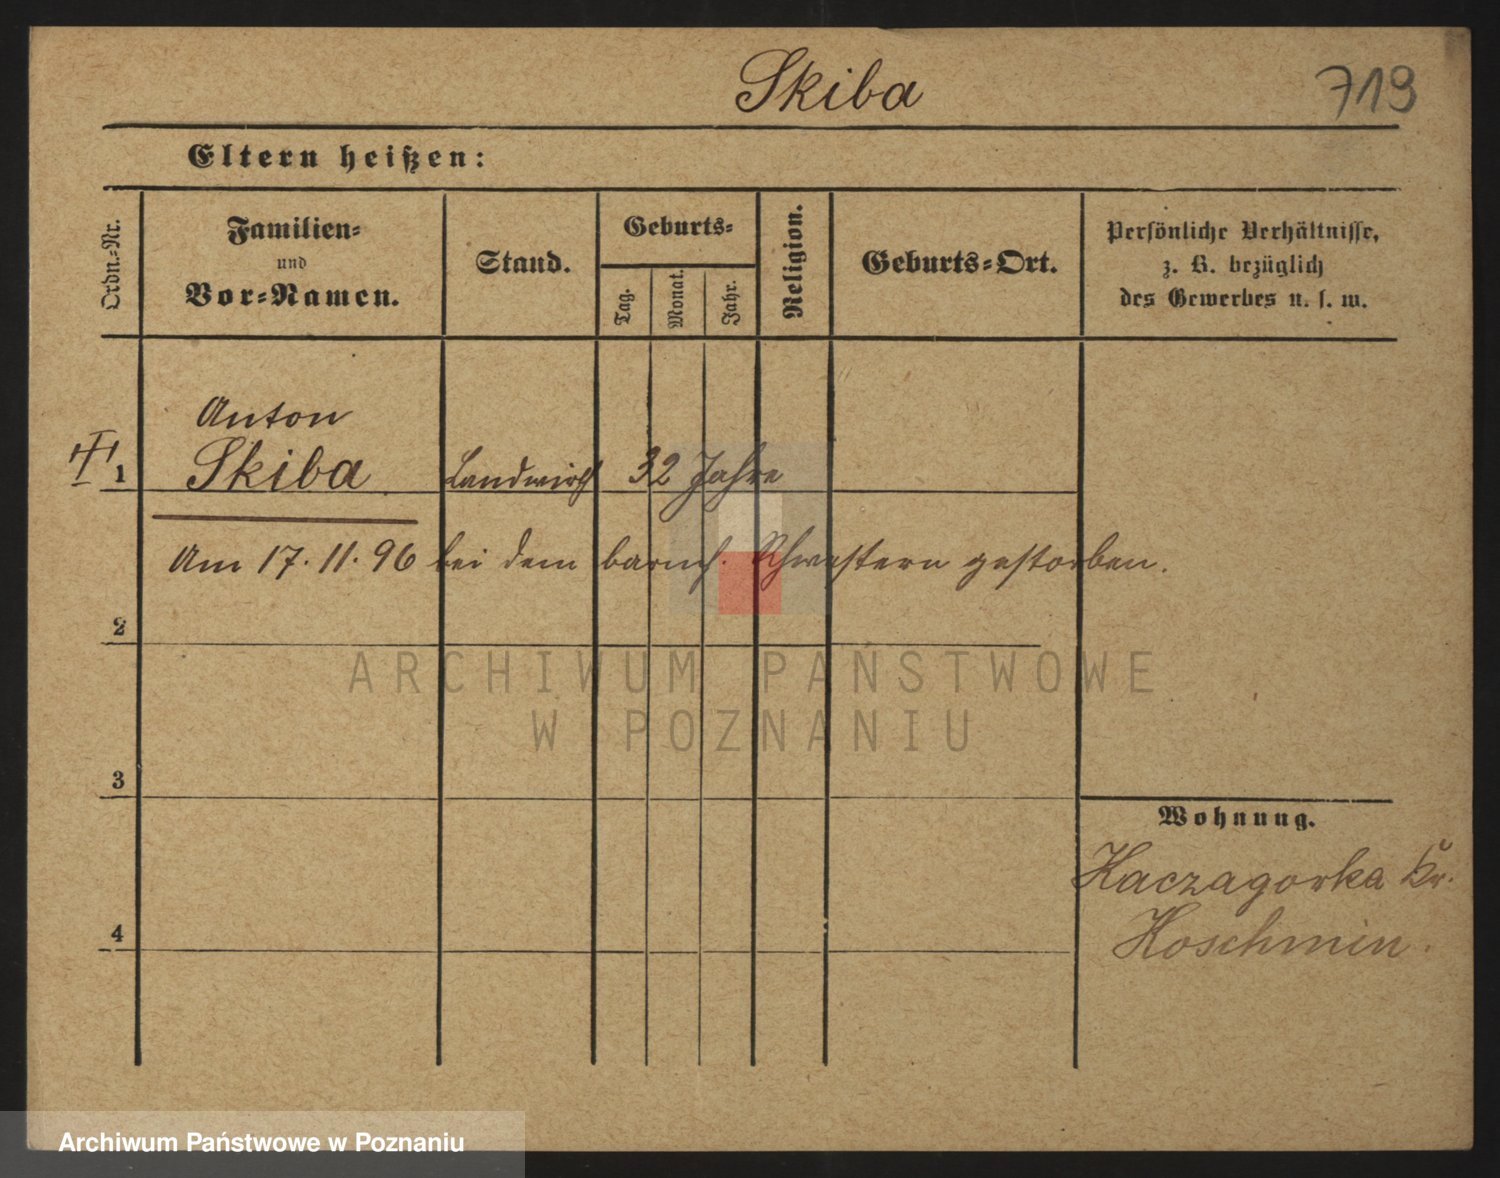 Skiba
719
Eltern heißen:
Ordn.-Nr.
Familien-
und
Vor-Namen.
Stand.
Geburts-
Tag.
Monat.
Jahr.
Religion.
Geburts-Ort.
Persönliche Verhältnisse,
z. B. bezüglich
des Gewerbes u. s. w.
Anton
1 Skiba Landwirth 32 Jahre
Am 17. 11. 96 bei dem barmh. Schwestern gestorben.
2
ARCHIWUM PAŃSTWOWE
W POZNANIU
3
Wohnung.
Kaczagorka Kr.
4
Koschmin.
Archiwum Państwowe w Poznaniu